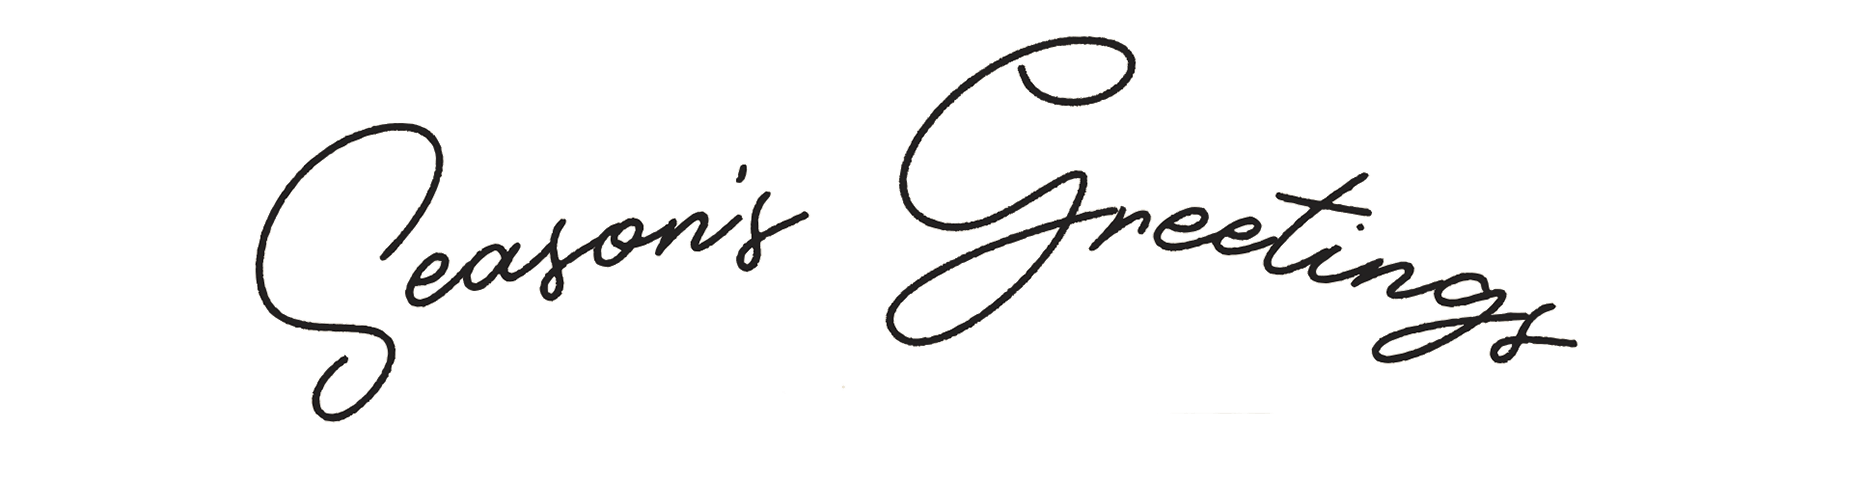 Season's Greetings